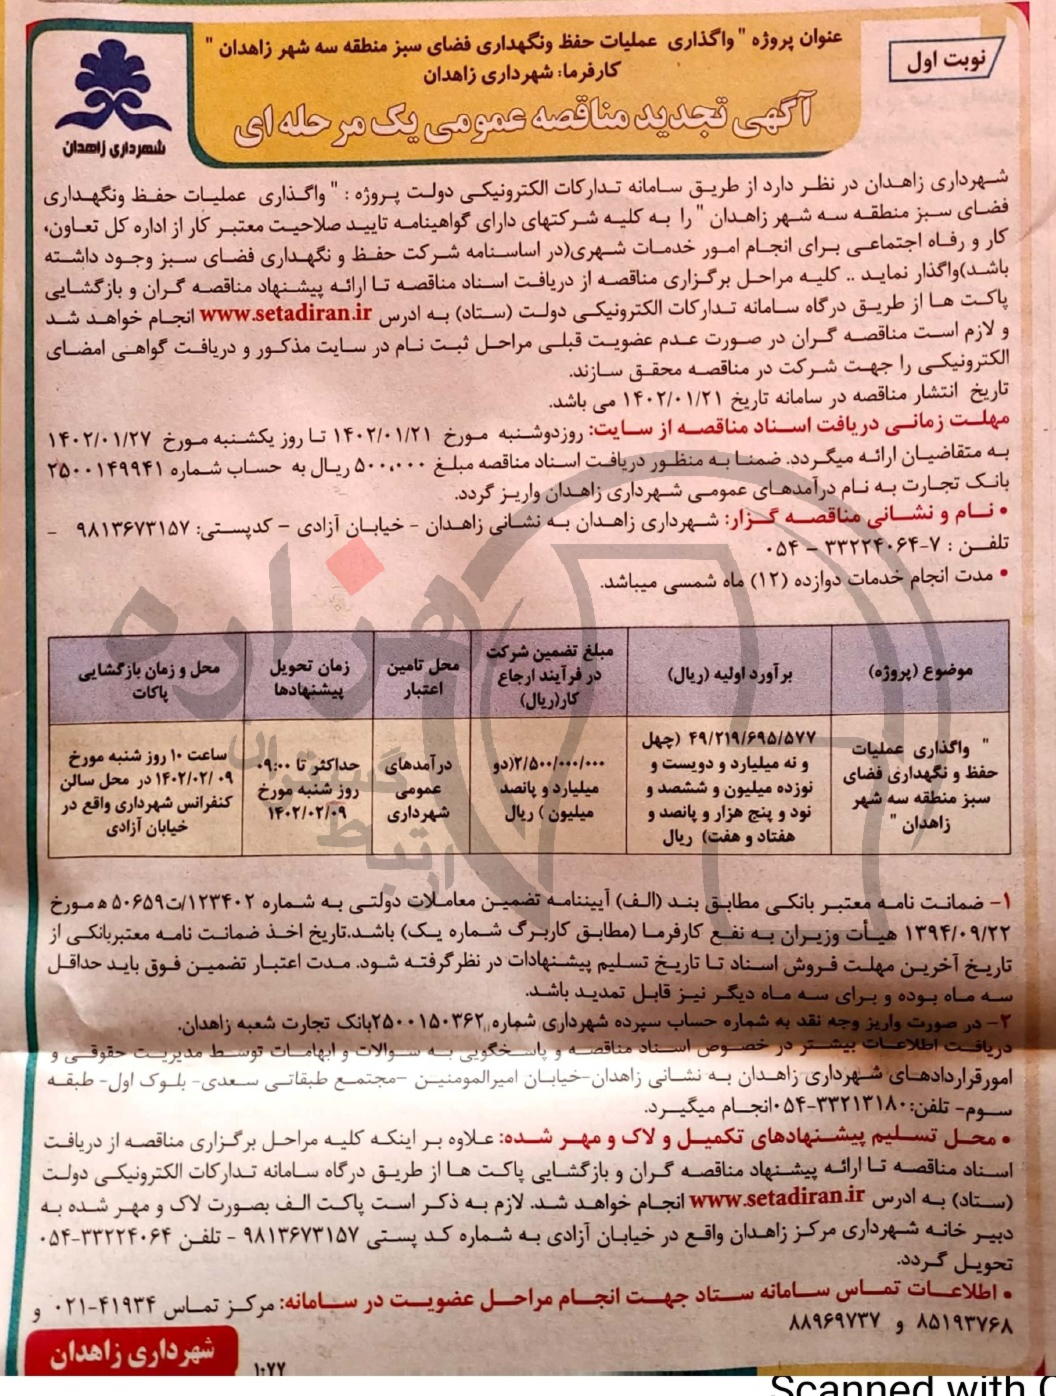 نوبت اول
عنوان پروژه " واگذاری عملیات حفظ ونگهداری فضای سبز منطقه سه شهر زاهدان "
کارفرما: شهرداری زاهدان
آگهی تجدید مناقصه عمومی یک مرحله ای
شهرداری زاهدان
شهرداری زاهدان در نظر دارد از طریق سامانه تدارکات الکترونیکی دولت پروژه : " واگذاری عملیات حفظ ونگهداری
فضای سبز منطقه سه شهر زاهدان " را به کلیه شرکتهای دارای گواهینامه تایید صلاحیت معتبر کار از اداره کل تعاون،
کار و رفاه اجتماعی برای انجام امور خدمات شهری(در اساسنامه شرکت حفظ و نگهداری فضای سبز وجود داشته
باشد)واگذار نماید .. کلیه مراحل برگزاری مناقصه از دریافت اسناد مناقصه تا ارائه پیشنهاد مناقصه گران و بازگشایی
پاکت ها از طریق درگاه سامانه تدارکات الکترونیکی دولت (ستاد) به ادرس www.setadiran.ir انجام خواهد شد
و لازم است مناقصه گران در صورت عدم عضویت قبلی مراحل ثبت نام در سایت مذکور و دریافت گواهی امضای
الکترونیکی را جهت شرکت در مناقصه محقق سازند.
تاریخ انتشار مناقصه در سامانه تاریخ ۱۴۰۲/۰۱/۲۱ می باشد.
مهلت زمانی دریافت اسناد مناقصه از سایت: روزدوشنبه مورخ ۱۴۰۲/۰۱/۲۱ تا روز یکشنبه مورخ ۱۴۰۲/۰۱/۲۷
به متقاضیان ارائه میگردد. ضمنا به منظور دریافت اسناد مناقصه مبلغ ۵۰۰،۰۰۰ ریال به حساب شماره ۲۵۰۰۱۴۹۹۴۱
بانک تجارت به نام درآمدهای عمومی شهرداری زاهدان واریز گردد.
• نام و نشانی مناقصه گزار: شهرداری زاهدان به نشانی زاهدان - خیابان آزادی – کدپستی: ۹۸۱۳۶۷۳۱۵۷ -
تلفن : ۷-۳۳۲۲۴۰۶۴ – ۰۵۴
• مدت انجام خدمات دوازده (۱۲) ماه شمسی میباشد.
موضوع (پروژه)
برآورد اولیه (ریال)
مبلغ تضمین شرکت
در فرآیند ارجاع
کار(ریال)
محل تامین
اعتبار
زمان تحویل
پیشنهادها
محل و زمان بازگشایی
پاکات
" واگذاری عملیات
حفظ و نگهداری فضای
سبز منطقه سه شهر
زاهدان "
۴۹/۲۱۹/۶۹۵/۵۷۷ (چهل
و نه میلیارد و دویست و
نوزده میلیون و ششصد و
نود و پنج هزار و پانصد و
هفتاد و هفت) ریال
۲/۵۰۰/۰۰۰/۰۰۰(دو
میلیارد و پانصد
میلیون ) ریال
درآمدهای
عمومی
شهرداری
حداکثر تا ۰۹:۰۰
روز شنبه مورخ
۱۴۰۲/۰۲/۰۹
ساعت ۱۰ روز شنبه مورخ
۱۴۰۲/۰۲/ ۰۹در محل سالن
کنفرانس شهرداری واقع در
خیابان آزادی
۱- ضمانت نامه معتبر بانکی مطابق بند (الف) آییننامه تضمین معاملات دولتی به شماره ۱۲۳۴۰۲/ت۵۰۶۵۹ ه مورخ
۱۳۹۴/۰۹/۲۲ هیأت وزیران به نفع کارفرما (مطابق کاربرگ شماره یک) باشد.تاریخ اخذ ضمانت نامه معتبربانکی از
تاریخ آخرین مهلت فروش اسناد تا تاریخ تسلیم پیشنهادات در نظرگرفته شود. مدت اعتبار تضمین فوق باید حداقل
سه ماه بوده و برای سه ماه دیگر نیز قابل تمدید باشد.
۲- در صورت واریز وجه نقد به شماره حساب سپرده شهرداری شماره ۲۵۰۰۱۵۰۳۶۲بانک تجارت شعبه زاهدان.
دریافت اطلاعات بیشتر در خصوص اسناد مناقصه و پاسخگویی به سوالات و ابهامات توسط مدیریت حقوقی و
امورقراردادهای شهرداری زاهدان به نشانی زاهدان-خیابان امیرالمومنین –مجتمع طبقاتی سعدی- بلوک اول- طبقه
سوم- تلفن:۳۳۲۱۳۱۸۰-۰۵۴انجام میگیرد.
• محل تسلیم پیشنهادهای تکمیل و لاک و مهر شده: علاوه بر اینکه کلیه مراحل برگزاری مناقصه از دریافت
اسناد مناقصه تا ارائه پیشنهاد مناقصه گران و بازگشایی پاکت ها از طریق درگاه سامانه تدارکات الکترونیکی دولت
(ستاد) به ادرس www.setadiran.ir انجام خواهد شد. لازم به ذکر است پاکت الف بصورت لاک و مهر شده به
دبیر خانه شهرداری مرکز زاهدان واقع در خیابان آزادی به شماره کد پستی ۹۸۱۳۶۷۳۱۵۷ - تلفن ۳۳۲۲۴۰۶۴-۰۵۴
تحویل گردد.
• اطلاعات تماس سامانه ستاد جهت انجام مراحل عضویت در سامانه: مرکز تماس ۴۱۹۳۴-۰۲۱ و
۸۵۱۹۳۷۶۸ و ۸۸۹۶۹۷۳۷
شهرداری زاهدان
۱۰۲۲
هزاره
گسترش
ارتباط
Scanned with